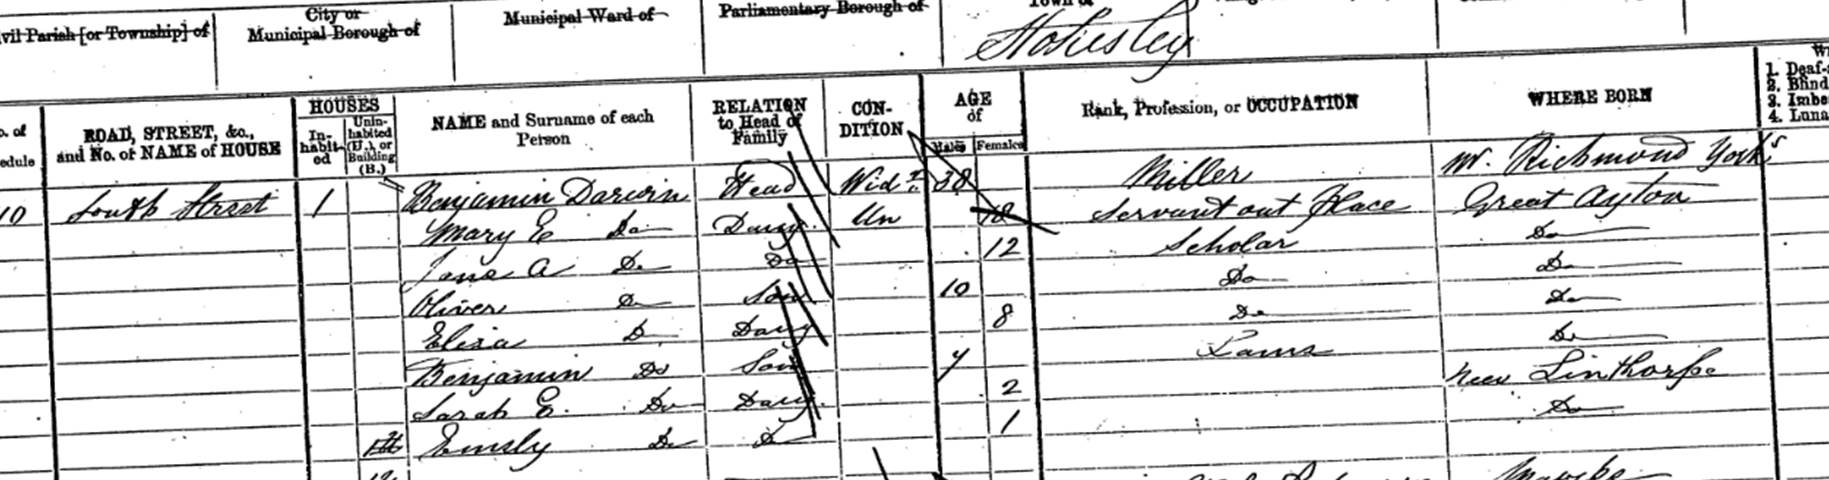 vil Parish [or Township] of City or Municipal Borough of Municipal Ward of Parliamentary Borough of Town of
Stokesley
o. of edule ROAD, STREET, &c., and No. or NAME of HOUSE HOUSES In-habit-ed Unin-habited (U.), or Building (B.) NAME and Surname of each Person RELATION to Head of Family CON-DITION AGE of Males Females Rank, Profession, or OCCUPATION WHERE BORN 1. Deaf- 2. Blind 3. Imbe 4. Luna
10 South Street 1 Benjamin Darwin Head Widr 38 Miller Nr. Richmond Yorks
Mary E Do Daug. Un 18 Servant out Place Great Ayton
Jane A Do Do 12 Scholar Do
Oliver Do Son 10 Do Do
Eliza Do Daug 8 Do Do
Benjamin Do Son 7 Do
Sarah E. Do Daug. 2 New Linthorpe
Emily Do D 1 Do